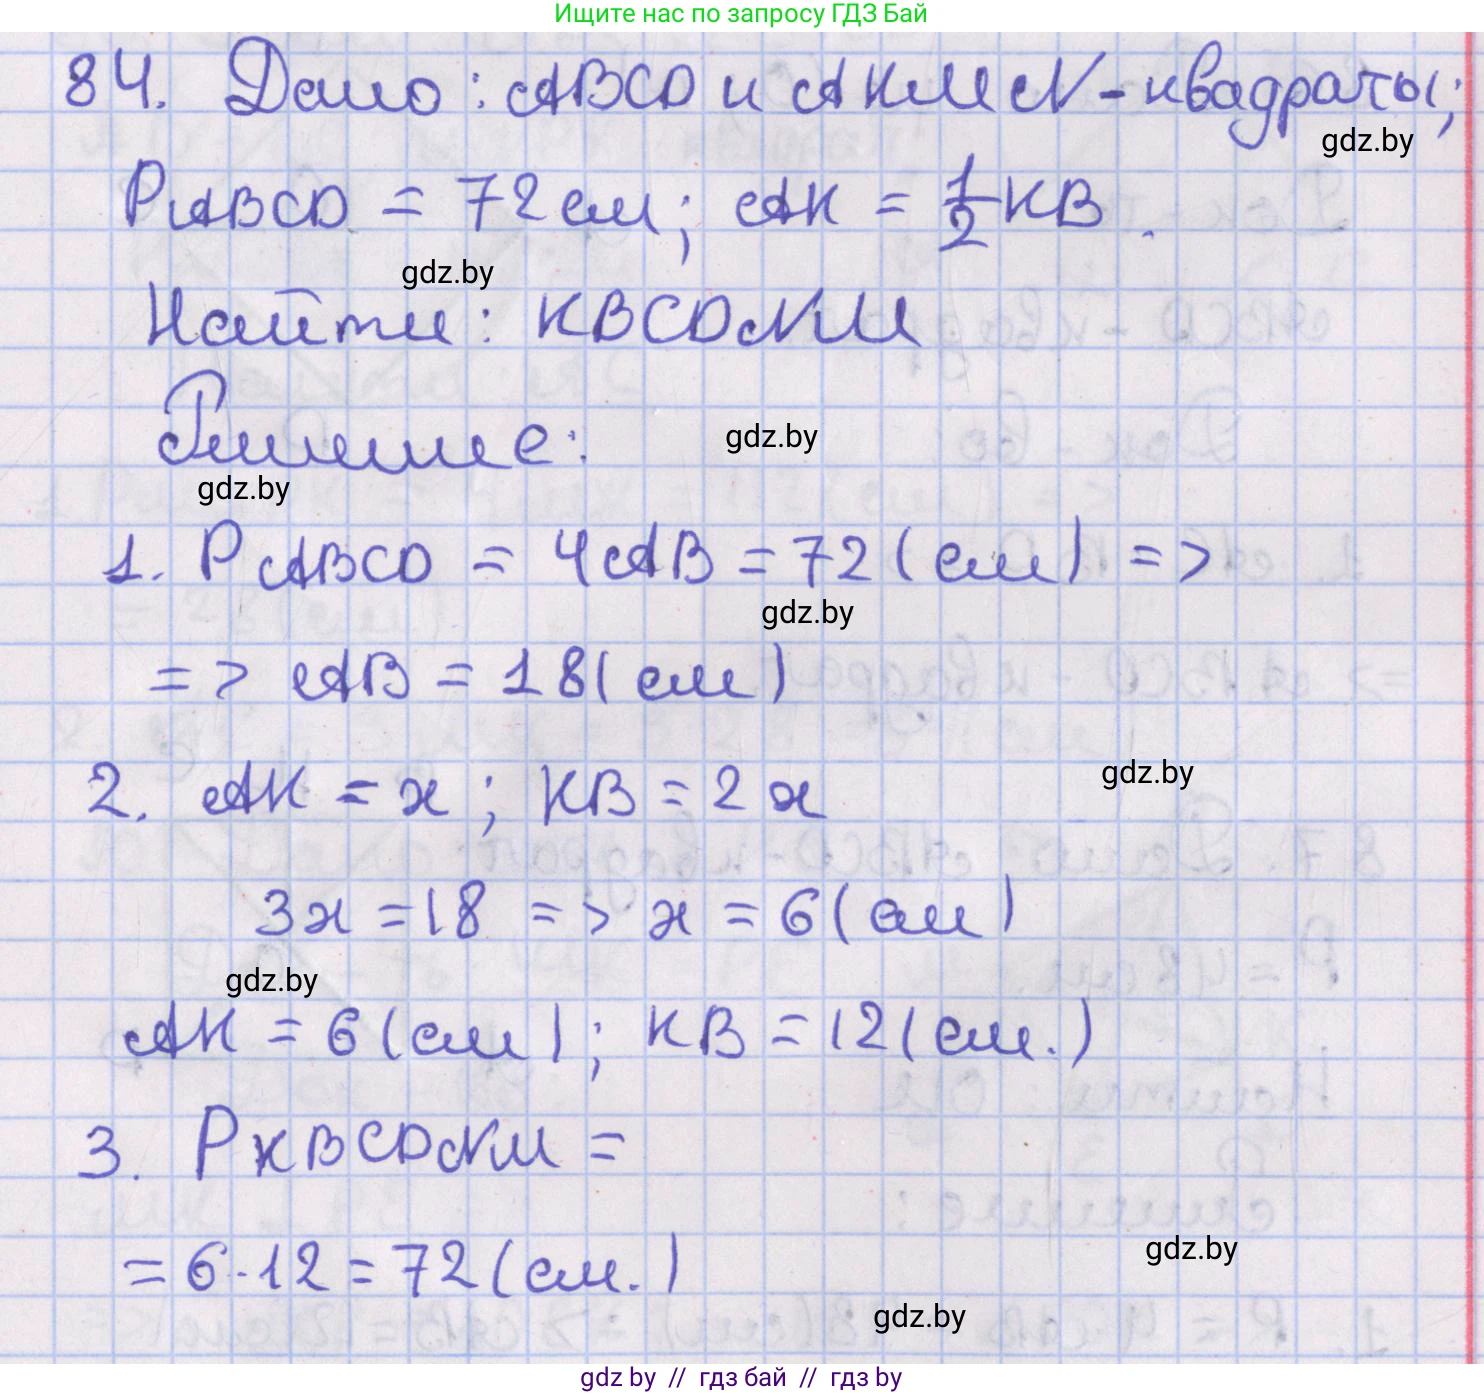 Ищите нас по запросу ГДЗ Бай
84. Дано: ABCD и AKMN - квадраты;
gdz.by
PABCD = 72 см; AK = 1/2 KB.
gdz.by
Найти: KBCDNM
Решение:
gdz.by
gdz.by
1. PABCD = 4AB = 72 (см) =>
gdz.by
=> AB = 18 (см)
gdz.by
2. AK = x; KB = 2x
3x = 18 => x = 6 (см)
gdz.by
AK = 6 (см); KB = 12 (см.)
3. PKBCDNM =
= 6·12 = 72 (см.)
gdz.by
gdz.by
gdz.by // гдз бай // gdz.by